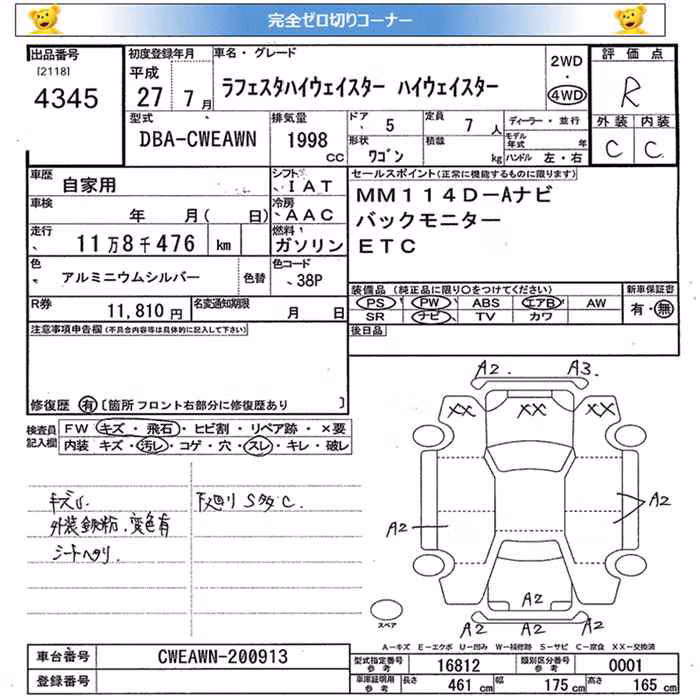 完全ゼロ切りコーナー
出品番号
[2118]
4345
初度登録年月
平成
27年 7月
車名・グレード
ラフェスタハイウェイスター ハイウェイスター
2WD
・
4WD
評価点
R
外装 内装
C C
型式
DBA-CWEAWN
排気量
1998
CC
ドア 5
定員 7 人
形状 ワゴン
積載 kg
ディーラー・並行
モデル年式 年
ハンドル 左・右
車歴 自家用
シフト IAT
車検 年 月( 日)
冷房 AAC
走行 11万8千476 km
燃料 ガソリン
色 アルミニウムシルバー 色替
色コード 38P
R券 11,810円
名変通知期限 月 日
セールスポイント(正常に機能するものに限ります)
MM114D-Aナビ
バックモニター
ETC
装備品 (純正品に限り○をつけてください)
PS PW ABS エアB AW
SR ナビ TV カワ
新車保証書
有・無
後日品
注意事項申告欄(不具合内容等は具体的に記入して下さい)
修復歴 有 [箇所 フロント右部分に修復歴あり ]
検査員記入欄
FW キズ・飛石・ヒビ割・リペア跡・×要
内装 キズ・汚レ・コゲ・穴・スレ・キレ・破レ
キズ凹
外装鉄粉、変色有
シートヘタリ
下廻りS多C.
A2. A3.
XX XX XX
A2
A2
A2
A2 A2 A2
スペア
A-キズ E-エクボ U-凹み W-補修跡 S-サビ C-腐食 XX-交換済
車台番号 CWEAWN-200913
登録番号
型式指定番号 参考 16812
類別区分番号 参考 0001
車庫証明用 参考 長さ 461 cm 幅 175 cm 高さ 165 cm